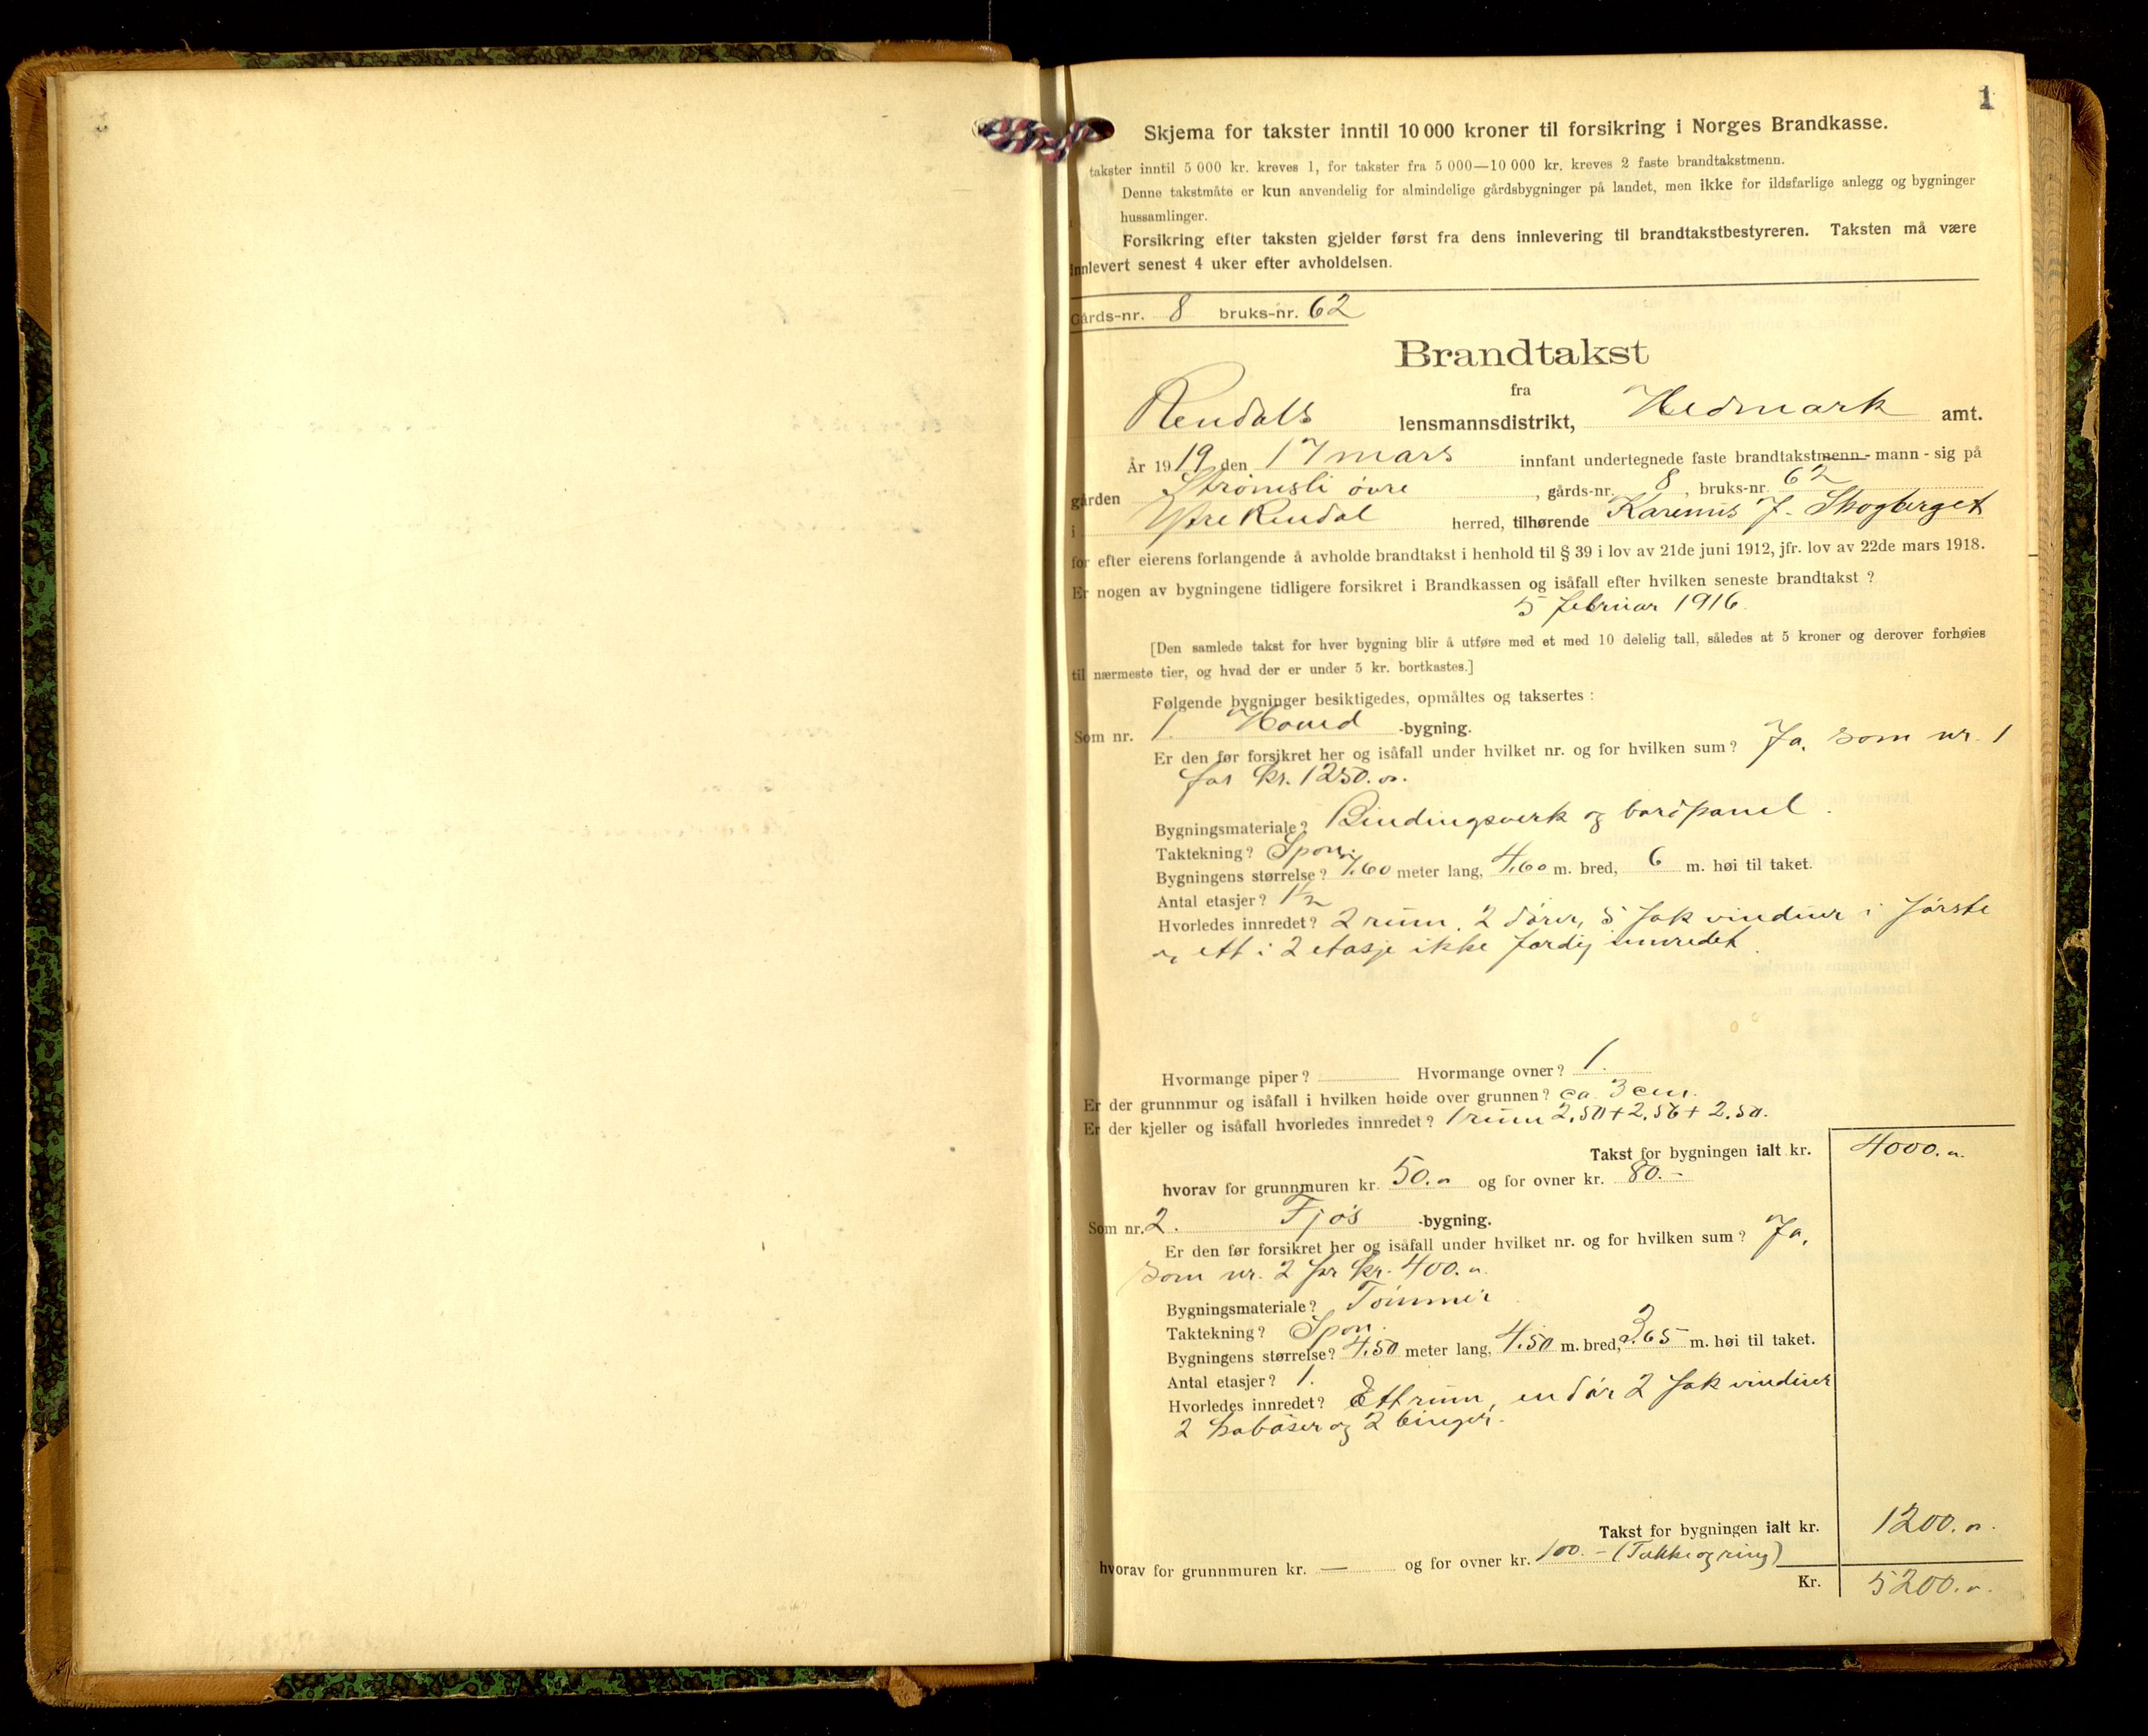 1
Skjema for takster inntil 10 000 kroner til forsikring i Norges Brandkasse.
takster inntil 5 000 kr. kreves 1, for takster fra 5 000—10 000 kr. kreves 2 faste brandtakstmenn.
Denne takstmåte er kun anvendelig for almindelige gårdsbygninger på landet, men ikke for ildsfarlige anlegg og bygninger
hussamlinger.
Forsikring efter taksten gjelder først fra dens innlevering til brandtakstbestyreren. Taksten må være
innlevert senest 4 uker efter avholdelsen.
Gårds-nr. 8 bruks-nr. 62
Brandtakst
fra
Rendals lensmannsdistrikt, Hedmark amt.
År 1919 den 17 mars innfant undertegnede faste brandtakstmenn - mann - sig på
gården Strömsli övre , gårds-nr. 8 , bruks-nr. 62
i Ytre Rendal herred, tilhørende Karenus J. Skogberget
for efter eierens forlangende å avholde brandtakst i henhold til § 39 i lov av 21de juni 1912, jfr. lov av 22de mars 1918.
Er nogen av bygningene tidligere forsikret i Brandkassen og isåfall efter hvilken seneste brandtakst ?
5 februar 1916.
[Den samlede takst for hver bygning blir å utføre med et med 10 delelig tall, således at 5 kroner og derover forhøies
til nærmeste tier, og hvad der er under 5 kr. bortkastes.]
Følgende bygninger besiktigedes, opmåltes og taksertes :
Som nr. 1. Hoved -bygning.
Er den før forsikret her og isåfall under hvilket nr. og for hvilken sum ? Ja, som nr. 1
for kr. 1250.
Bygningsmateriale ? Bindingsverk og bordpanel.
Taktekning ? Spon.
Bygningens størrelse ? 7.60 meter lang, 4.60 m. bred, 6 m. høi til taket.
Antal etasjer ? 1½
Hvorledes innredet ? 2 rum, 2 dörer, 5 fak vinduer i förste
og ett i 2 etasje ikke færdig innredet.
Hvormange piper ? Hvormange ovner ? 1.
Er der grunnmur og isåfall i hvilken høide over grunnen ? ca. 3 cm.
Er der kjeller og isåfall hvorledes innredet ? 1 rum 2.50 + 2.56 + 2.50.
Takst for bygningen ialt kr. 4000.
hvorav for grunnmuren kr. 50. og for ovner kr. 80.-
Som nr. 2. Fjös -bygning.
Er den før forsikret her og isåfall under hvilket nr. og for hvilken sum ? Ja,
som nr. 2 for kr. 400.
Bygningsmateriale ? Tömmer
Taktekning ? Spon.
Bygningens størrelse ? 4.50 meter lang, 4.50 m. bred, 3.65 m. høi til taket.
Antal etasjer ? 1.
Hvorledes innredet ? Ett rum, en dör 2 fak vinduer
2 kobåser og 2 binger.
Takst for bygningen ialt kr. 1200.
hvorav for grunnmuren kr. — og for ovner kr. 100. - (Takke og ring)
Kr. 5200.